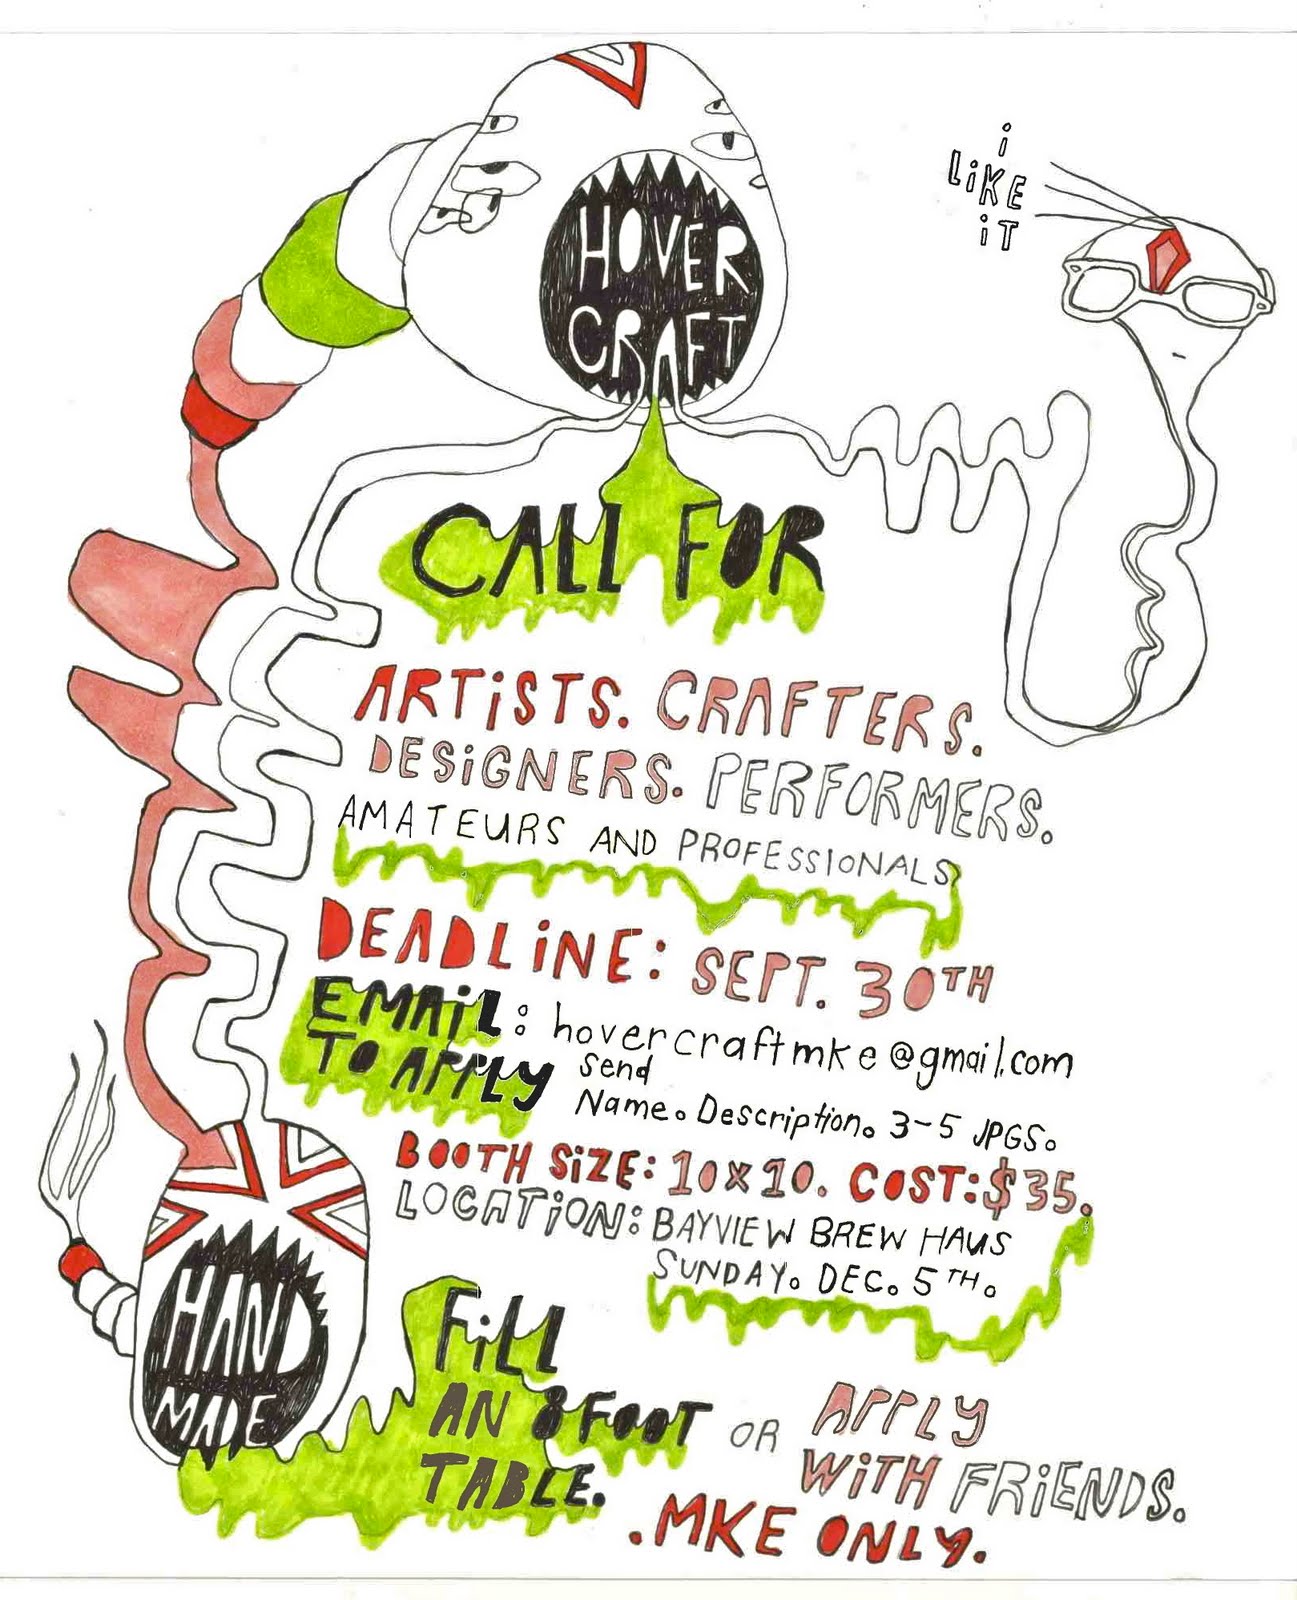 HOVER
CRAFT
i
LiKE
iT
CALL FOR
ARTiSTS. CRAFTERS.
DESiGNERS. PERFORMERS.
AMATEURS AND PROFESSIONALS
DEADLiNE: SEPT. 30TH
EMAiL: hovercraftmke@gmail.com
TO APPLY
send
Name. Description. 3-5 JPGS.
BOOTH SiZE: 10x10. COST: $35.
LOCATiON: BAYVIEW BREW HAUS
SUNDAY. DEC. 5TH.
HAND
MADE
FiLL
AN 8 FOOT
TABLE.
OR APPLY
WiTH FRiENDS.
.MKE ONLY.